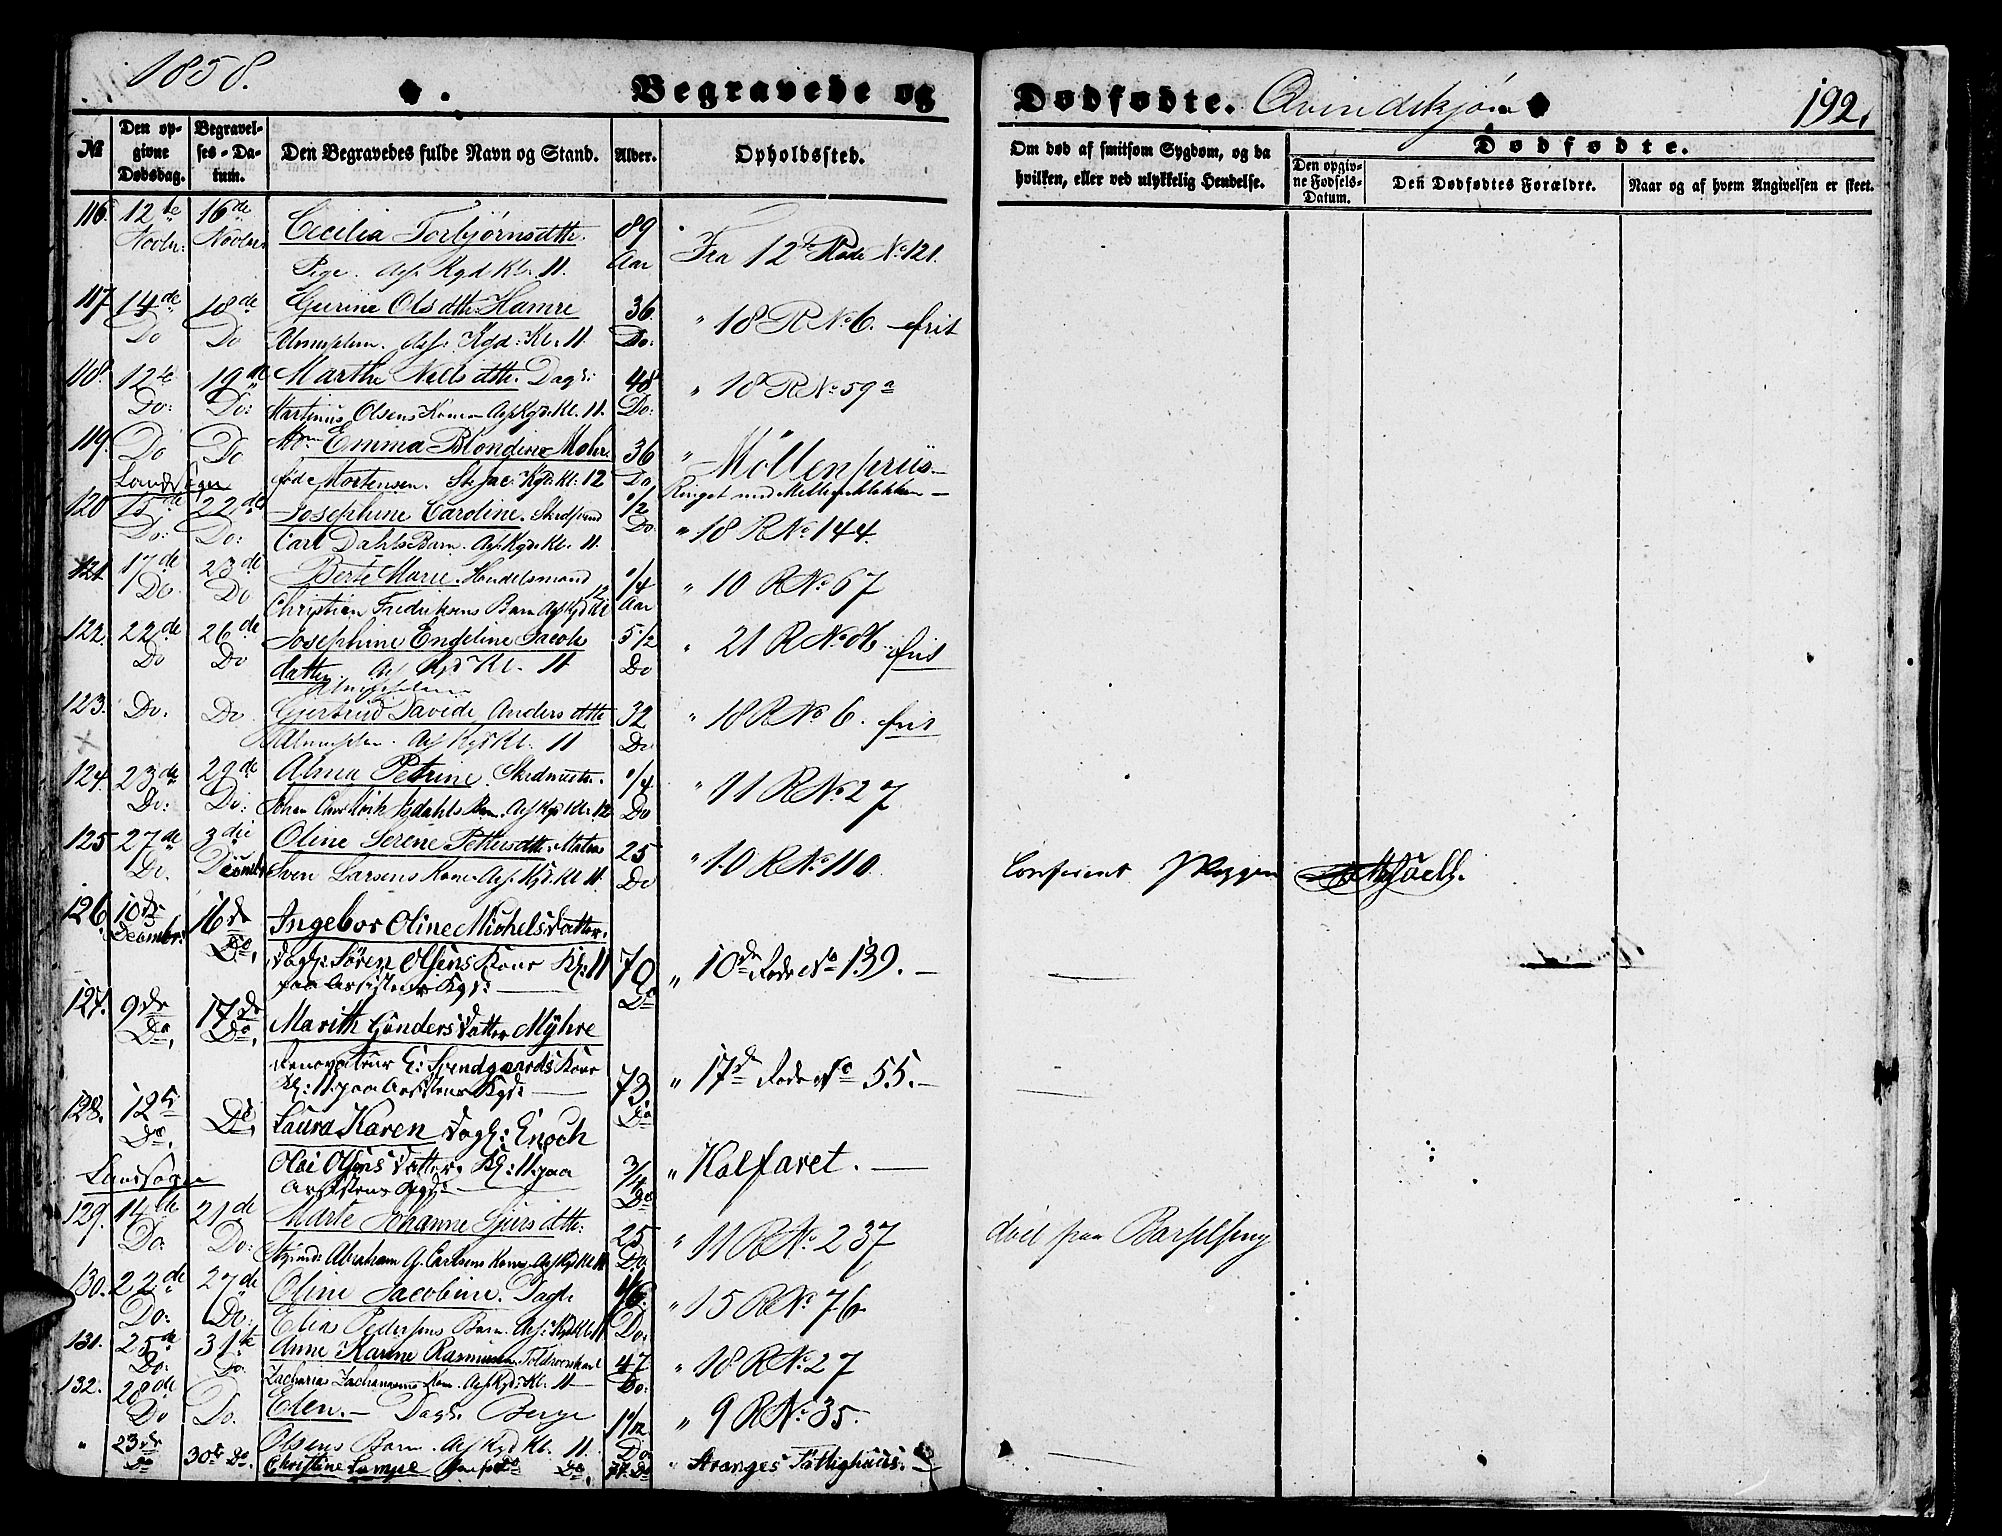 1858.
Begravede og
Dødfødte. Qvindekjøn
192.
No
Den opgivne Dødsdag.
Begravelses-Datum.
Den Begravedes fulde Navn og Stand.
Alder.
Opholdssted.
Om død af smitsom Sygdom, og da hvilken, eller ved ulykkelig Hendelse.
Dødfødte.
Den opgivne Fødsels-Datum.
Den Dødfødtes Forældre.
Naar og af hvem Angivelsen er skeet.
116. 12te 16de Cecilia Torbjørnsdttr. 89 Fra 12te Rode No 121.
Novbr: Novbr: Pige. Ass Kgd Kl. 11. Aar
117 14de 18de Gurine Olsdttr Hamre 36 " 18 R No 6. frit
Do Do Almuslem. Ass. Kgd: Kl. 11 Do:
118. 12te 19de Marthe Nielsdttr. Dagl: 48 " 18 R No 59a
Do: Do: Martinus Olsens Kone Ass Kgd: Kl. 11. Do:
119. Do Do Emma Blondine Mohr 36 " Möllenpriis
Landsogn født Mortensen. St Jac: Kgd: Kl: 12 Do Ringet med Mellemklokken
120 15de 22de Josephine Caroline. 1/2 " 18 R No 144.
Do: Do: Carl Dahls Barn. Ass Kgd: Kl. 11. Do
121 17de 23de Berte Marie. Handelsmand 1/4 " 10 R No 67
Do Do Christian Fredriksens Barn Ass Kgd Kl 12 Aar
122. 22de 26de Josephine Engeline Jacobs 5 1/2 " 21 R No 86. frit
Do Do datter. Ass Kgd Kl. 11 Do
123. Do. Do Gjertrud Davide Andersdttr 32 " 18 R No 6. frit
Almuslem. Ass Kgd Kl. 11 Do
124. 23de 29de Alma Petrine. 1/4 " 11 R No 27
Do: Do: Johan Barn. Ass Kgd Kl: 12 Do
125 27de 3die Oline Serene Pettersdttr. Matros 25 " 10 R No 110
Do. Decembr Sven Larsens Kone. Ass. Kgd. Kl 11. Do
126. 10de 16de Ingebor Oline Michelsdatter.
Decembr: Do, Dagl: Søren Olsens Kone Kl: 11 70 " 10de Rode No 139.
paa Assistens Kgd: Do
127. 9de 17de Marith Gundersdatter Myhre
Do, Do, Renovateur Kone
Kl: 11 paa Assistens Kgd: 73 " 17de Rode No 55.
128. 12te Do, Laura Karen Dagl: Enoch Do
Do, Olai Olsens datter. Kl: 11 paa " Kalfaret.
Landsogn Assistens Kgd: 3/4 Do
129. 14de 21de Marte Johanne 25 " 11 R No 237 død paa Barselseng
Do. Do: Abraham G. Carlsens Kone. Ass Kgd Kl 11 Do.
130. 22de 27de Oline Jacobine. Dagl: 1/6 " 15 R No 76
Do: Do: Elias Pedersens Barn. Ass: Kgd Kl 11 Do:
131. 25de 31te Anne Karine Rasmussen. 47 " 18 R No 27
Do. Do Zacharias Zachariasens Kone. Ass Kgd: Kl. 11 Do:
132. 28de Do. Elen. Dagl: Berge 1/12 " 9 R No 35.
Do Olsens Barn. Ass Kgd Kl. 11. Do
" 23de Do 30te Do. Christine Lampe Do, Do " Stranges Fattighuus.